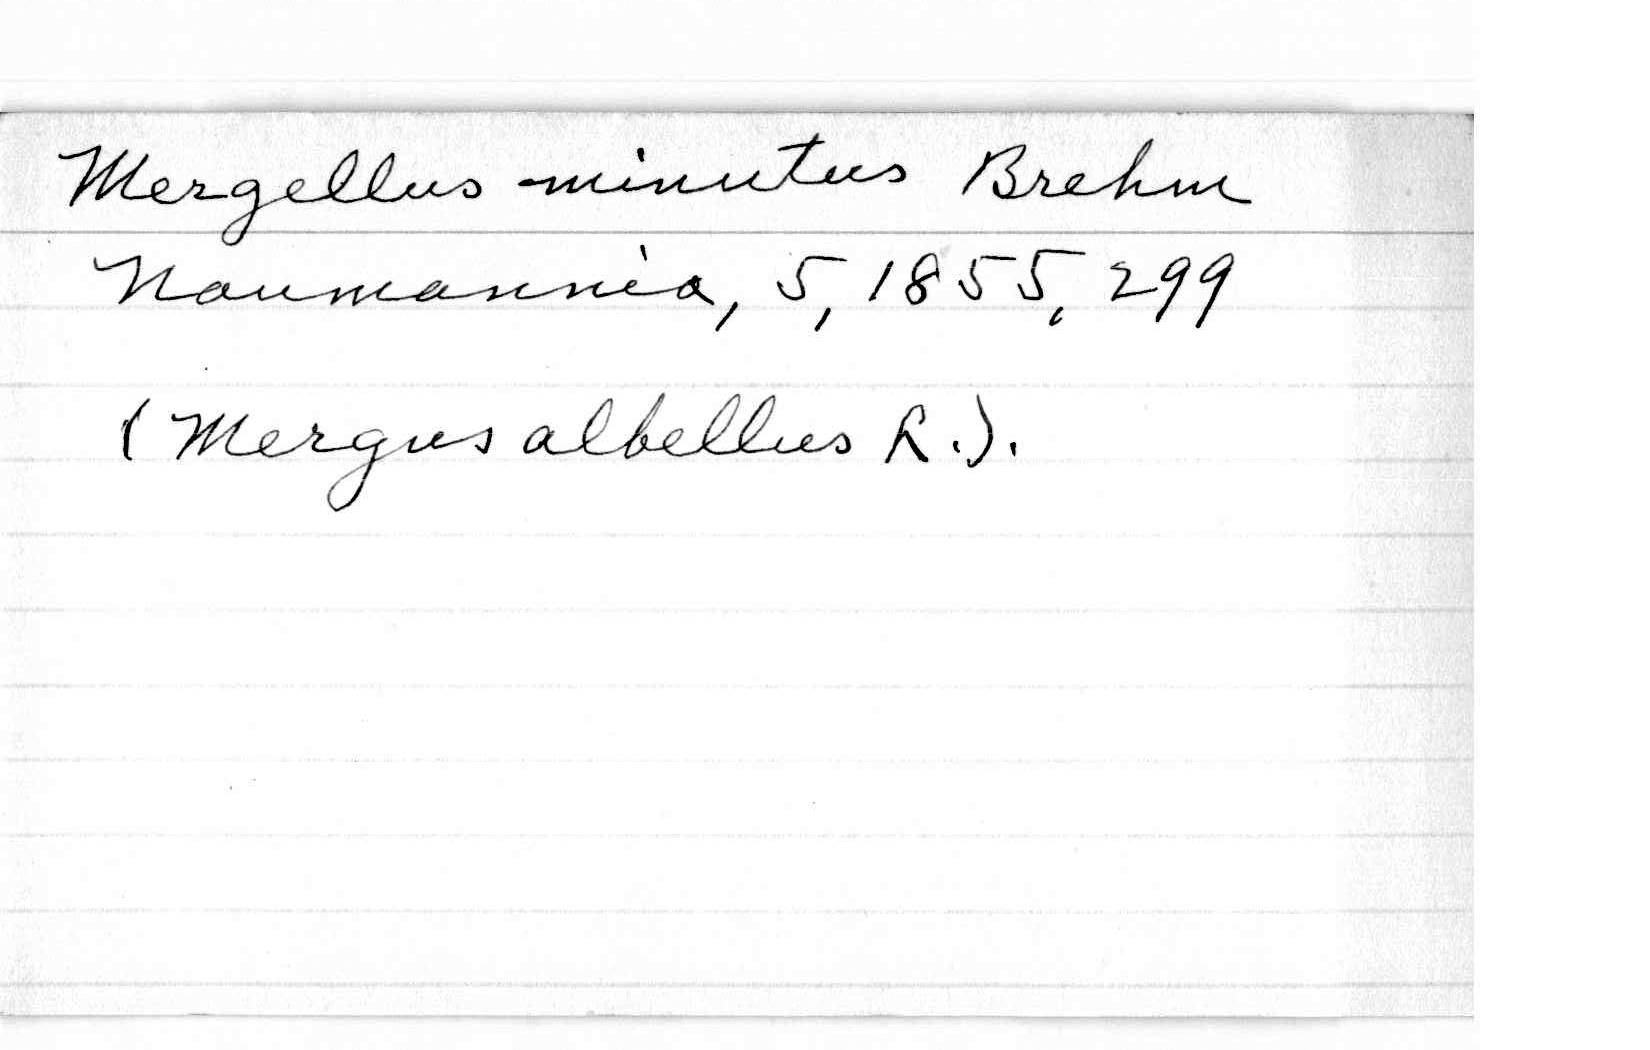 Mergellus minutus Brehm
Naumannia, 5, 1855, 299
(Mergus albellus L.).